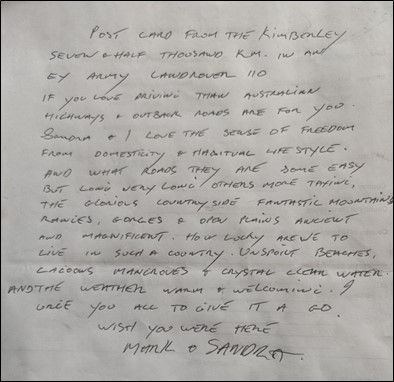 POST CARD FROM THE KIMBERLEY
SEVEN & HALF THOUSAND KM. IN AN
EX ARMY LANDROVER 110
IF YOU LOVE DRIVING THAN AUSTRALIAN
HIGHWAYS & OUTBACK ROADS ARE FOR YOU.
SANDRA & I LOVE THE SENSE OF FREEDOM
FROM DOMESTICITY & HABITUAL LIFESTYLE.
AND WHAT ROADS THEY ARE SOME EASY
BUT LONG VERY LONG OTHERS MORE TAXING,
THE GLORIOUS COUNTRYSIDE FANTASTIC MOUNTAINS
RANGES, GORGES & OPEN PLAINS ANCIENT
AND MAGNIFICENT. HOW LUCKY ARE WE TO
LIVE IN SUCH A COUNTRY. UNSPOILT BEACHES,
LAGOONS MANGROVES & CRYSTAL CLEAR WATER.
AND THE WEATHER WARM & WELCOMING. I
URGE YOU ALL TO GIVE IT A GO.
WISH YOU WERE HERE
MARK & SANDRA.